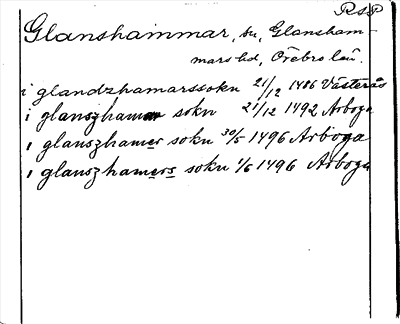 RsP
Glanshammar, sn, Glansham-
mars hd, Örebro län.
i glandzhamarssokn 21/12 1486 Västerås
i glanszhamar sokn 21/12 1492 Arboga
i glanszhamer sokn 30/5 1496 Arboga
i glanszhamers sokn 1/6 1496 Arboga